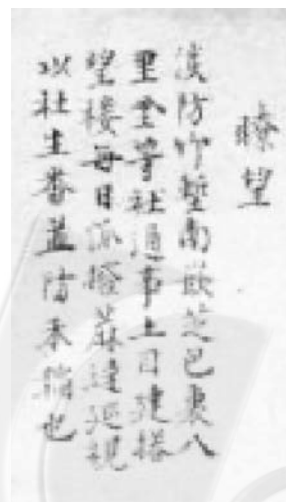 瞭望
淡防竹塹南嵌芝包裏八
里坌等社通事土目建搭
望樓每日派撥蔴達巡視
以杜生番並防禾稼也